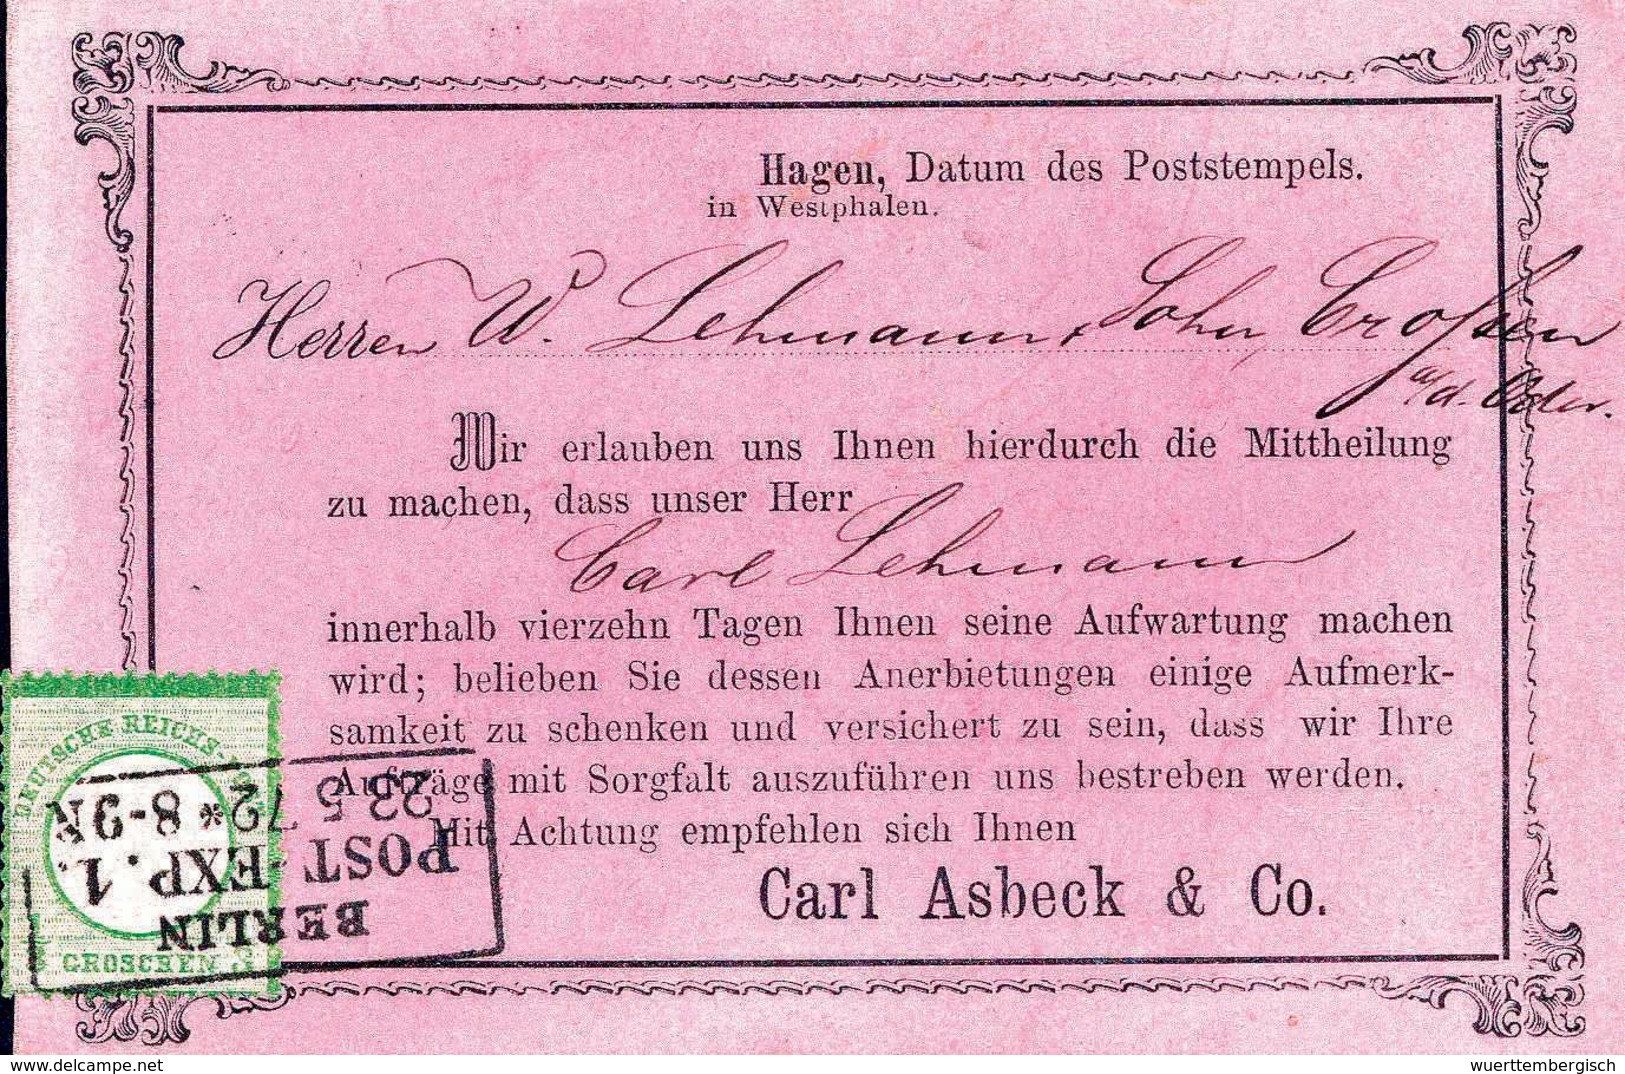 Hagen, Datum des Poststempels.
in Westphalen.
Herren W. Lehmann, Sohn, Crossen
a/d. Oder.
Wir erlauben uns Ihnen hierdurch die Mittheilung
zu machen, dass unser Herr
Carl Lehmann
innerhalb vierzehn Tagen Ihnen seine Aufwartung machen
wird; belieben Sie dessen Anerbietungen einige Aufmerk-
samkeit zu schenken und versichert zu sein, dass wir Ihre
Aufträge mit Sorgfalt auszuführen uns bestreben werden.
Mit Achtung empfehlen sich Ihnen
Carl Asbeck & Co.
DEUTSCHE REICHS
GROSCHEN
BERLIN
POST-EXP. 1
23 5 72 * 8-9N
www.delcampe.net
wuerttembergisch